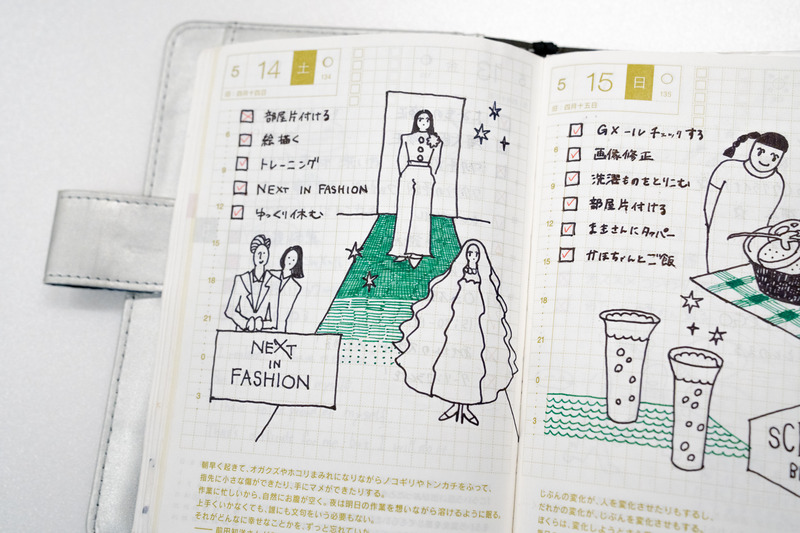 5 14 土
134
旧・四月十四日
部屋片付ける
絵描く
トレーニング
NEXT IN FASHION
ゆっくり休む
6
9
12
15
18
21
0
3
NEXT
IN
FASHION
朝早く起きて、オガクズやホコリまみれになりながらノコギリやトンカチをふって、
指先に小さな傷ができたり、手にマメができたりする。
作業に忙しいから、自然にお腹が空く。夜は明日の作業を想いながら溶けるように眠る。
上手くいかなくても、誰にも文句をいう必要もない。
それがどんなに幸せなことかを、ずっと忘れていた。
5 15 日
135
旧・四月十五日
GメールチェックするS
画像修正
洗濯ものをとりこむ
部屋片付ける
まきさんにタッパー
かほちゃんとご飯
6
9
12
15
18
21
0
3
じぶんの変化が、人を変化させたりもするし、
だれかの変化が、じぶんを変化させもする。